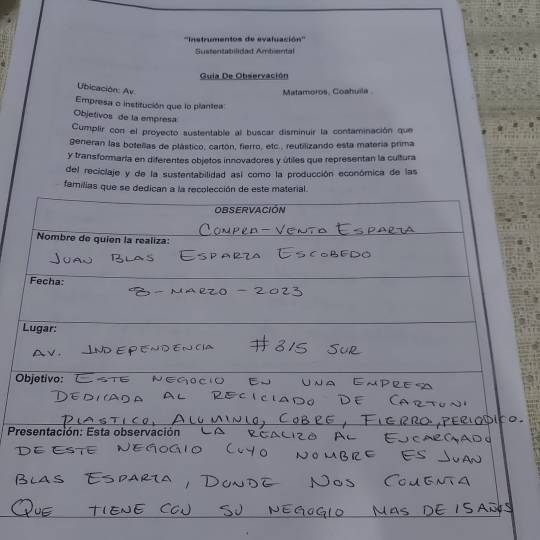 "Instrumentos de evaluación"
Sustentabilidad Ambiental
Guia De Observación
Ubicación: Av. Matamoros, Coahuila .
Empresa o institución que lo plantea:
Objetivos de la empresa:
Cumplir con el proyecto sustentable al buscar disminuir la contaminación que
generan las botellas de plástico, cartón, fierro, etc., reutilizando esta materia prima
y transformarla en diferentes objetos innovadores y útiles que representan la cultura
del reciclaje y de la sustentabilidad así como la producción económica de las
familias que se dedican a la recolección de este material.
OBSERVACIÓN
COMPRA-VENTA ESPARZA
Nombre de quien la realiza:
JUAN BLAS ESPARZA ESCOBEDO
Fecha:
8-MARZO-2023
Lugar:
AV. INDEPENDENCIA #315 SUR
Objetivo: ESTE NEGOCIO EN UNA EMPRESA
DEDICADA AL RECICLADO DE CARTON
PLASTICO, ALUMINIO, COBRE, FIERRO, PERIODICO.
Presentación: Esta observación LA REALIZO AL ENCARGADO
DE ESTE NEGOGIO CUYO NOMBRE ES JUAN
BLAS ESPARZA, DONDE NOS COMENTA
QUE TIENE CON SU NEGOGIO MAS DE 15 AÑOS